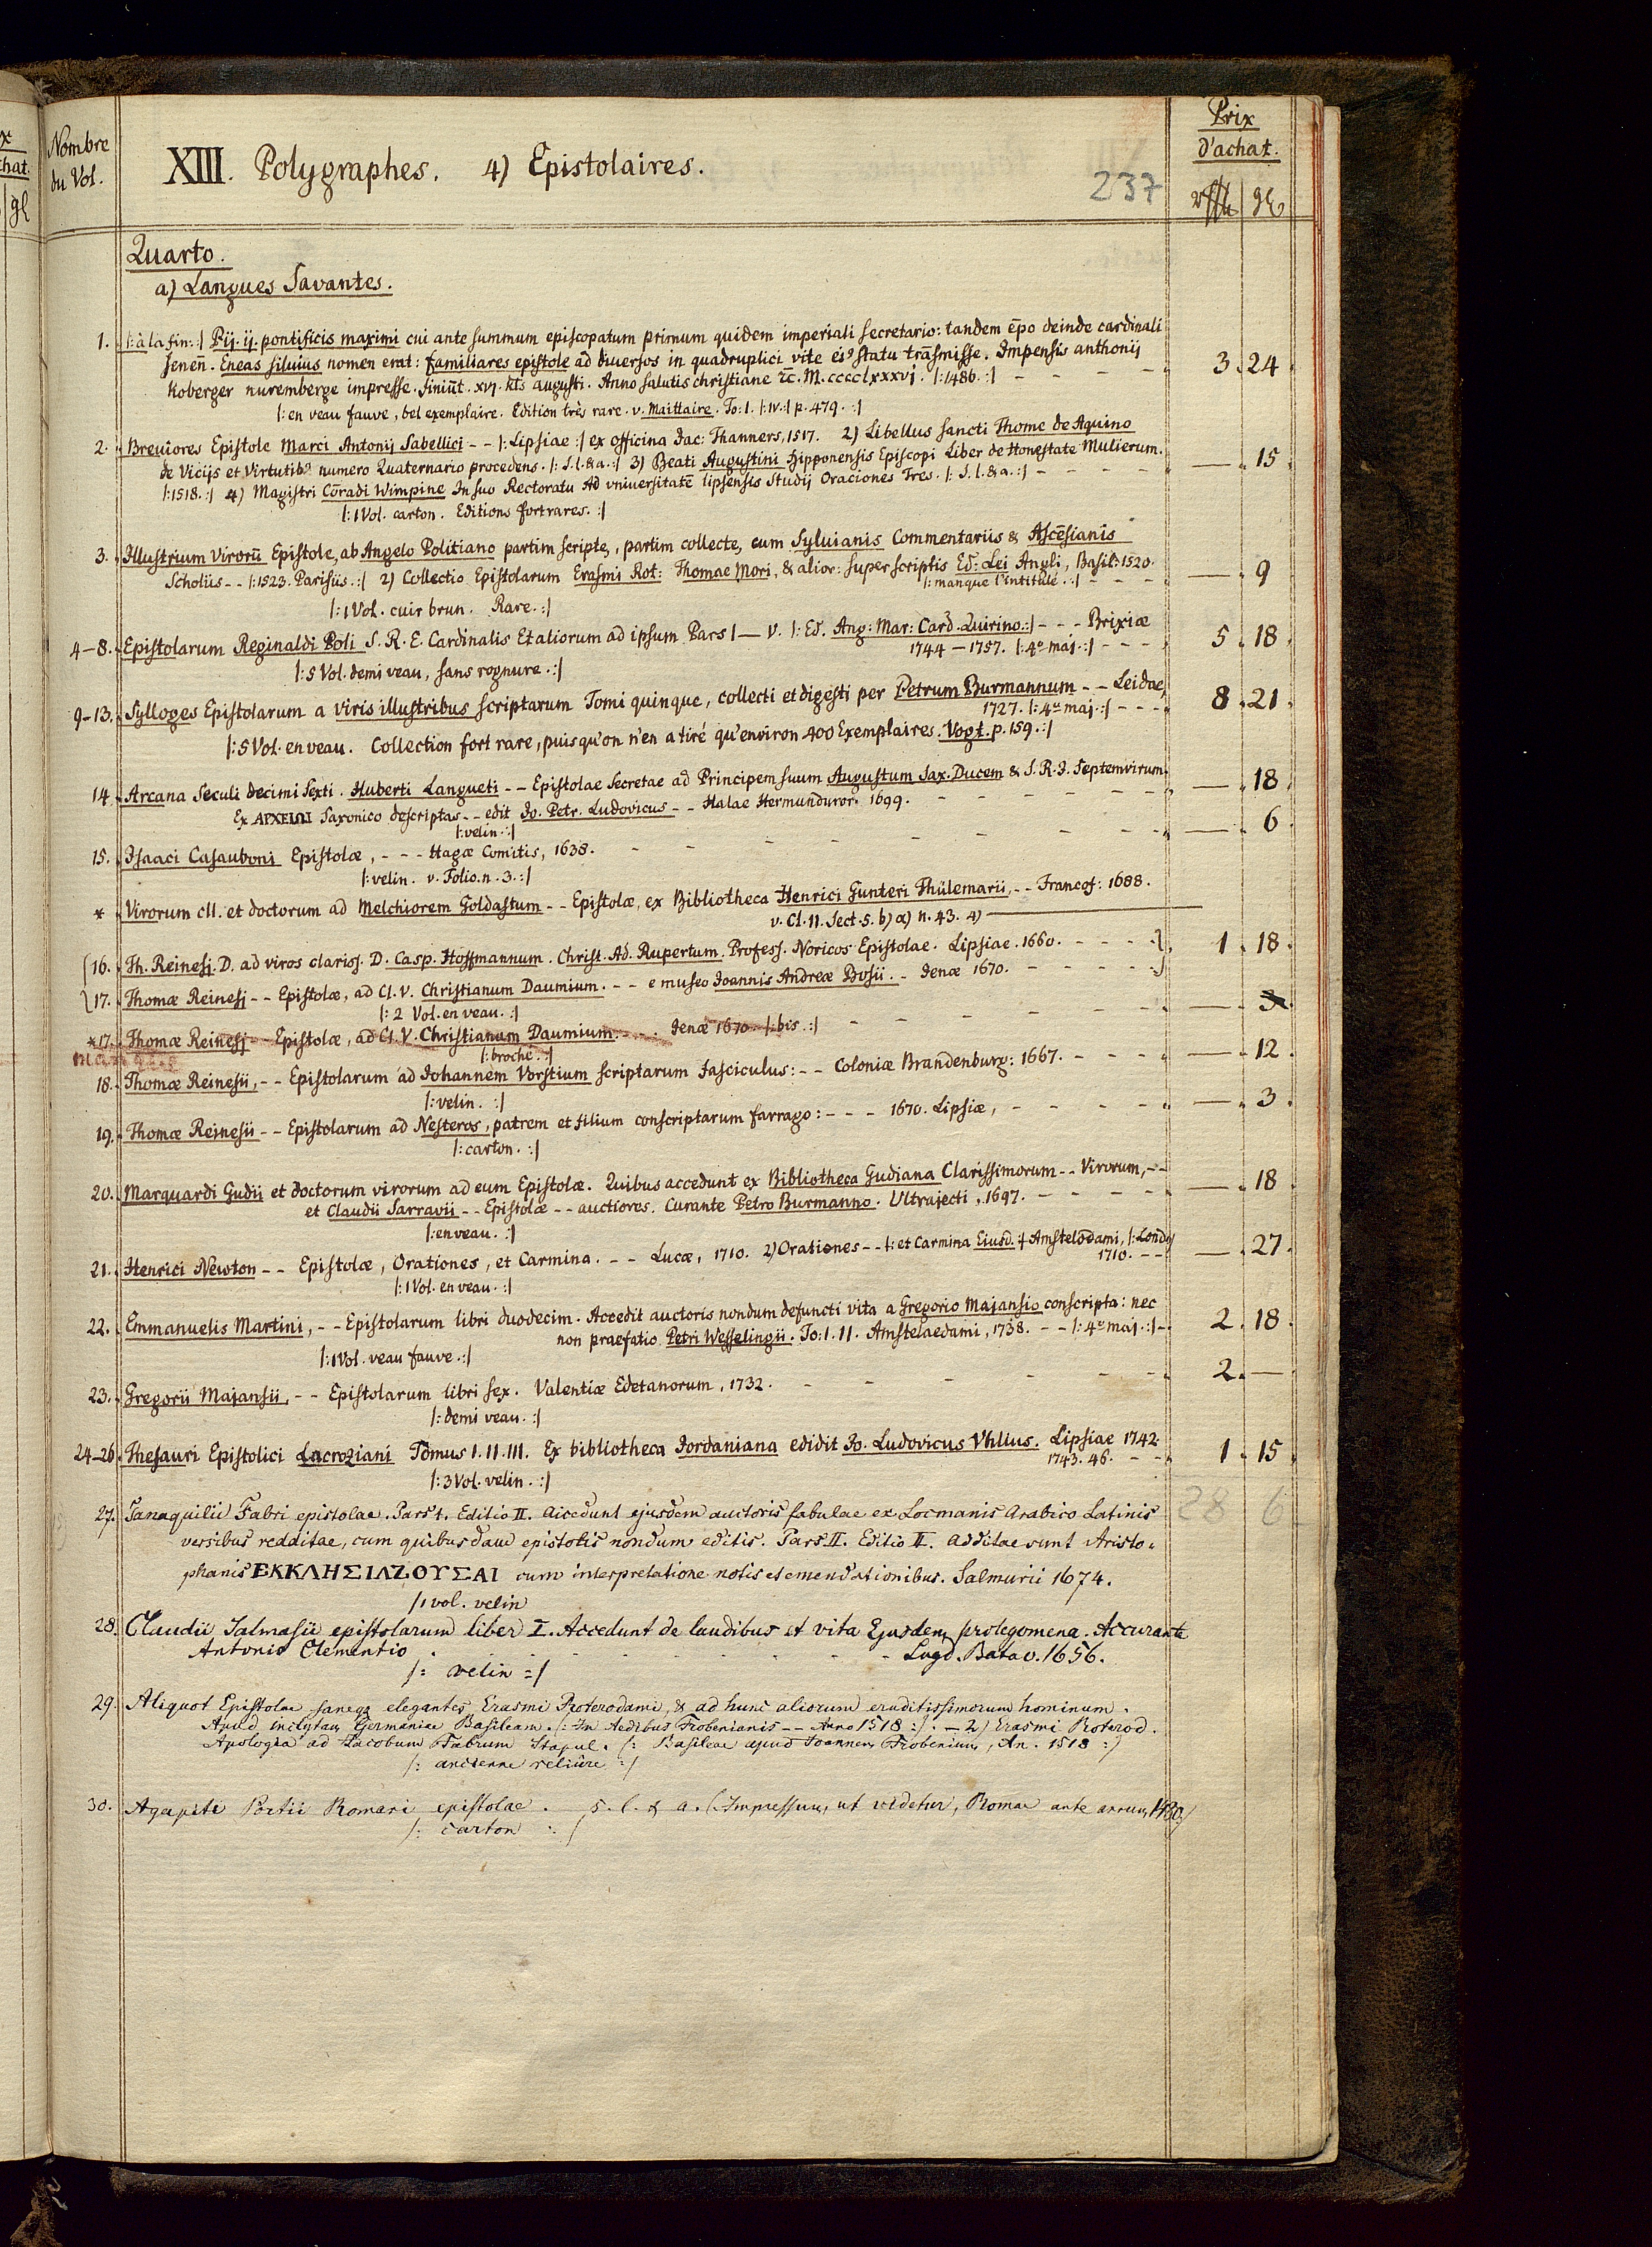 Prix
d'achat.
Nombre
du Vol.
XIII. Polygraphes. 4) Epistolaires.
237
rthl gl
Quarto.
a) Langues Savantes.
1. |: à la fin: :| Pij. ij. pontificis maximi cui ante summum episcopatum primum quidem imperiali secretario: tandem ēpo deinde cardinali
senen̄. Eneas siluius nomen erat: familiares epistole ad diuersos in quadruplici vite ei⁹ statu trāsmisse. Impensis anthonij 3. 24.
Koberger nuremberge impresse. finiūt. xvj. kl̄s augusti. Anno salutis christiane ⁊c̄. M.cccclxxxvj. |: 1486. :| - - - -
|: en veau fauve, bel exemplaire. Edition très rare. v. Maittaire. To: I. |: IV. :| p. 479. :|
2. Breuiores Epistole Marci Antonij Sabellici - - |: Lipsiae :| ex officina Jac: Thanners, 1517. 2) Libellus sancti Thome de Aquino
de Vicijs et Virtutib⁹ numero Quaternario procedens. |: S. l. & a. :| 3) Beati Augustini Hipponensis Episcopi Liber de Honestate Mulierum. — . 15
|: 1518. :| 4) Magistri Cōradi Wimpine In suo Rectoratu Ad vniuersitatē lipsensis Studij Oraciones Tres. |: S. l. & a. :| - - - -
|: 1 Vol. carton. Editions fort rares. :|
3. Illustrium virorū Epistole, ab Angelo Politiano partim scripte, partim collecte, cum Syluianis Commentariis & Ascēsianis
Scholiis - - |: 1523. Parisiis. :| 2) Collectio Epistolarum Erasmi Rot: Thomae Mori, & alior: super scriptis Ed: Lei Angli, Basil: 1520. — . 9
|: manque l'intitulé. :| - - -
|: 1 Vol. cuir brun. Rare. :|
4-8. Epistolarum Reginaldi Poli S. R. E. Cardinalis Et aliorum ad ipsum Pars I — V. |: Ed. Ang: Mar: Card. Quirino. :| - - - Brixiæ 5. 18.
1744 — 1757. |: 4º maj. :| - - -
|: 5 Vol. demi veau, sans rognure. :|
9-13. Sylloges Epistolarum a viris illustribus scriptarum Tomi quinque, collecti et digesti per Petrum Burmannum - - Leidae, 8. 21.
1727. |: 4º maj. :| - - -
|: 5 Vol. en veau. Collection fort rare, puisqu'on n'en a tiré qu'environ 400 Exemplaires. Vogt. p. 159. :|
14. Arcana Seculi decimi Sexti. Huberti Langueti - - Epistolae Secretae ad Principem suum Augustum Sax. Ducem & S. R. I. Septemvirum. — . 18.
Ex ΑΡΧΕΙΩΙ Saxonico descriptas - - edit Jo. Petr. Ludovicus - - Halae Hermunduror. 1699. - - - - -
|: velin. :|
15. Isaaci Casauboni Epistolæ, - - - Hagæ Comitis, 1638. - - - - - — . 6.
|: velin. v. Folio. n. 3. :|
* Virorum cll. et doctorum ad Melchiorem Goldastum - - Epistolæ, ex Bibliotheca Henrici Gunteri Thülemarii, - - Francof: 1688.
v. Cl. II. Sect. 5. b) α) n. 43. 4) —
16. Th. Reinesj. D. ad viros clariss. D. Casp. Hoffmannum. Christ. Ad. Rupertum. Profess. Noricos Epistolae. Lipsiae. 1660. - - - 1. 18.
17. Thomæ Reinesj - - Epistolæ, ad Cl. V. Christianum Daumium. - - e museo Joannis Andreæ Bosii. - Jenæ 1670. - - - -
|: 2 Vol. en veau. :|
*17. Thomæ Reinesj - - Epistolæ, ad Cl. V. Christianum Daumium. - - . Jenæ 1670. |: bis. :| - - - — . 3.
manque
|: broché. :|
18. Thomæ Reinesii, - - Epistolarum ad Johannem Vorstium scriptarum Fasciculus: - - Coloniæ Brandenburg: 1667. - - - — . 12.
|: velin. :|
19. Thomæ Reinesii - - Epistolarum ad Nesteros, patrem et filium conscriptarum farrago: - - - 1670. Lipsiæ, - - - — . 3.
|: carton. :|
20. Marquardi Gudii et doctorum virorum ad eum Epistolæ. Quibus accedunt ex Bibliotheca Gudiana Clarissimorum - - Virorum, - - — . 18.
et Claudii Sarravii - - Epistolæ - - auctiores. Curante Petro Burmanno. Ultrajecti, 1697. - - - -
|: en veau. :|
21. Henrici Newton - - Epistolæ, Orationes, et Carmina. - - Lucæ, 1710. 2) Orationes - - |: et Carmina Eiusd. :| Amstelodami, |: Lond: — . 27.
1710. - -
|: 1 Vol. en veau. :|
22. Emmanuelis Martini, - - Epistolarum libri duodecim. Accedit auctoris nondum defuncti vita a Gregorio Majansio conscripta: nec 2. 18.
non praefatio Petri Wesselingii. To: I. II. Amstelaedami, 1738. - - |: 4º maj. :| -
|: 1 Vol. veau fauve. :|
23. Gregorii Majansii, - - Epistolarum libri sex. Valentiæ Edetanorum, 1732. - - - - - 2. —
|: demi veau. :|
24-26. Thesauri Epistolici Lacroziani Tomus I. II. III. Ex bibliotheca Jordaniana edidit Jo. Ludovicus Vhllus. Lipsiae 1742. 1. 15.
1743. 46. - -
|: 3 Vol. velin. :|
28 6
27. Tanaquilii Fabri epistolae. Pars I. Editio II. Accedunt ejusdem auctoris fabulae ex Locmanis Arabico Latinis
versibus redditae, cum quibusdam epistolis nondum editis. Pars II. Editio II. Additae sunt Aristo-
phanis ΕΚΚΛΗΣΙΑΖΟΥΣΑΙ cum interpretatione notis et emendationibus. Salmurii 1674.
/1 vol. velin
28. Claudii Salmasii epistolarum liber I. Accedunt de laudibus et vita Ejusdem prolegomena. Accurante
Antonio Clementio . - - - - - - Lugd. Batav. 1656.
|: velin :|
29. Aliquot Epistolae saneq; elegantes, Erasmi Roterodami, & ad hunc aliorum eruditissimorum hominum.
Apud inclytam Germaniae Basileam. |: In Aedibus Frobenianis - - Anno 1518 :|. - 2) Erasmi Roterod.
Apologia ad Jacobum Fabrum Stapul. |: Basileae apud Joannem Frobenium, An. 1518 :|
|: ancienne reliûre :|
30. Agapiti Portii Romani epistolae. s. l. & a. |: Impressum, ut videtur, Romae ante annum 1480 :|
|: carton :|